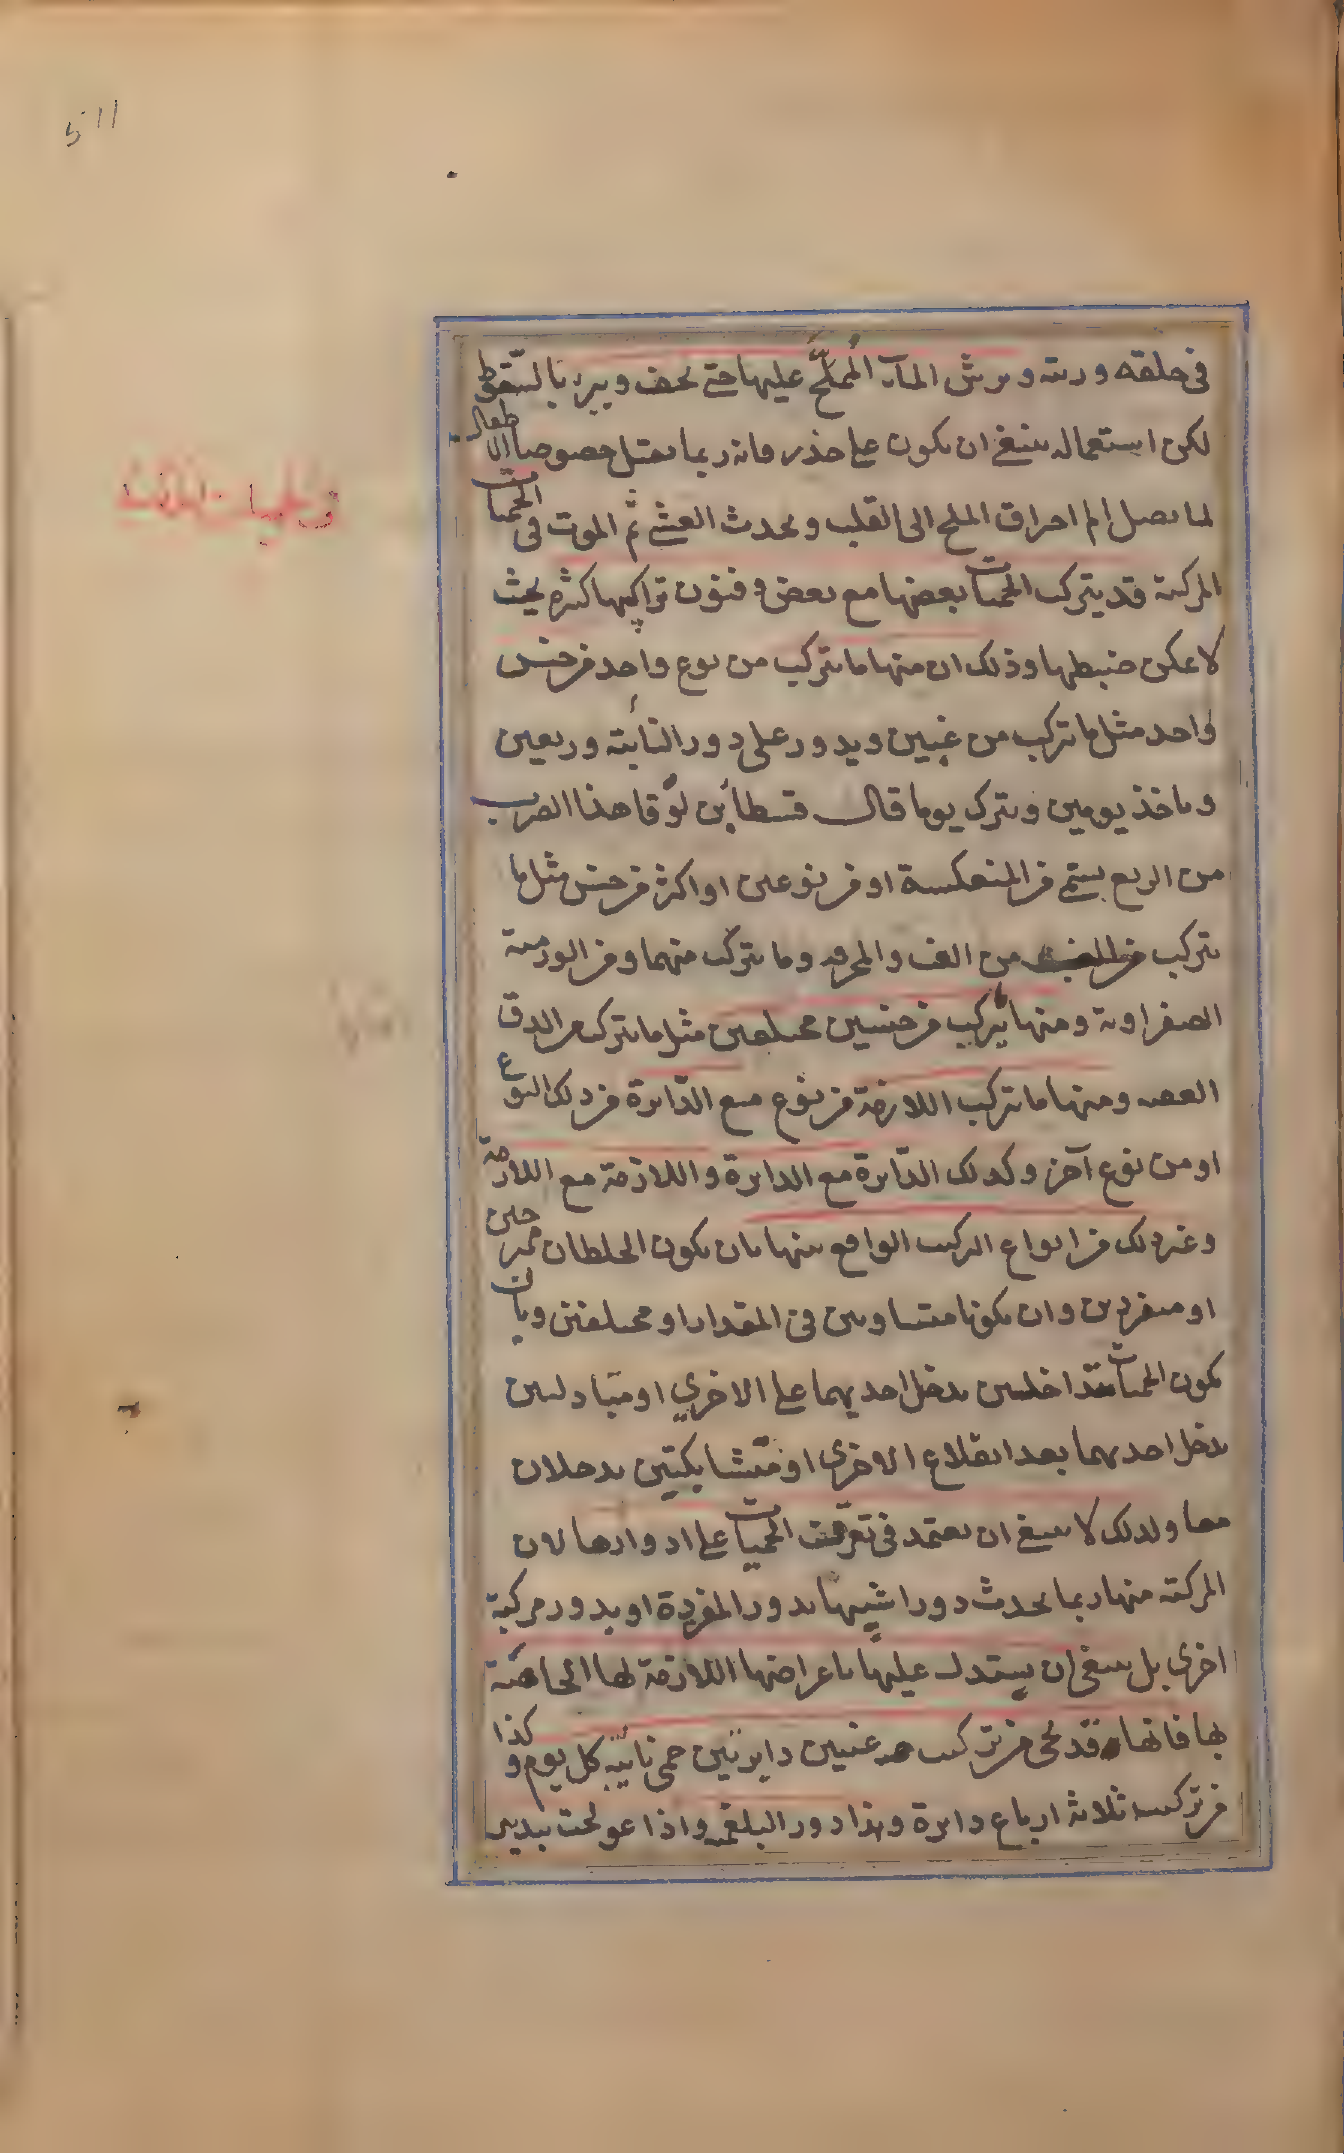 في حلقه ورىته ويرش المآء المُملَّح عليها حتى يجف ويبرء بالسّقوط
لكن استعماله ينبغي ان يكون على حذر فانه ربما يقتل خصوصا الاطفال
لما يصل الم احراق الملح الى القلب ويحدث الغشي ثم الموت في الحميات
المركبة قد يتركب الحميات بعضها مع بعض وفنون تراكيبها كثيرة بحيث
لا يمكن ضبطها وذلك ان منها ما يتركب من نوع واحد من جنس
واحد مثل ما تركب من غبين ويدور على دور النائبة وربعين
وياخذ يومين ويترك يوما قال قسطا بن لوقا هذا الضرب
من الربع يسمى المنعكسة او من نوعين او اكثر من جنس مثل ما
يتركب من الغب والمحرقة وما يتركب منهما ومن الورمية
الصفراوية ومنها يتركب من جنسين مختلفين مثل ما يتركب من الدق
العفنية ومنها ما يتركب اللازمة من نوع مع الدّائرة من ذلك النوع
او من نوع آخر وكذلك الدّائرة مع الدايرة واللازمة مع اللازمة
وغير ذلك من انواع التركيب الواقع بينها بان يكون الخلطان ممتزجين
او منفردين وان يكونا متساويين في المقدار او مختلفين وبان
يكون الحميات متداخلتين يدخل احديهما على الاخرى او متبادلتين
يدخل احديهما بعد اقلاع الاخرى او متشابكتين يدخلان
معا ولذلك لا ينبغي ان يعتمد في تعرّف الحميات على ادوارها لان
المركبة منها ربما يحدث دورا شبيها بدور المفردة او بدور مركبة
اخرى بل ينبغي ان يستدل عليها باعراضها اللازمة لها الخاصّة
بها فانها قد يجئ من تركيب غبين دايرتين حمى نائبة كل يوم وكذا
من تركيب ثلاثة ارباع دايرة وهذا دور البلغمية واذا عولجت بتدبير